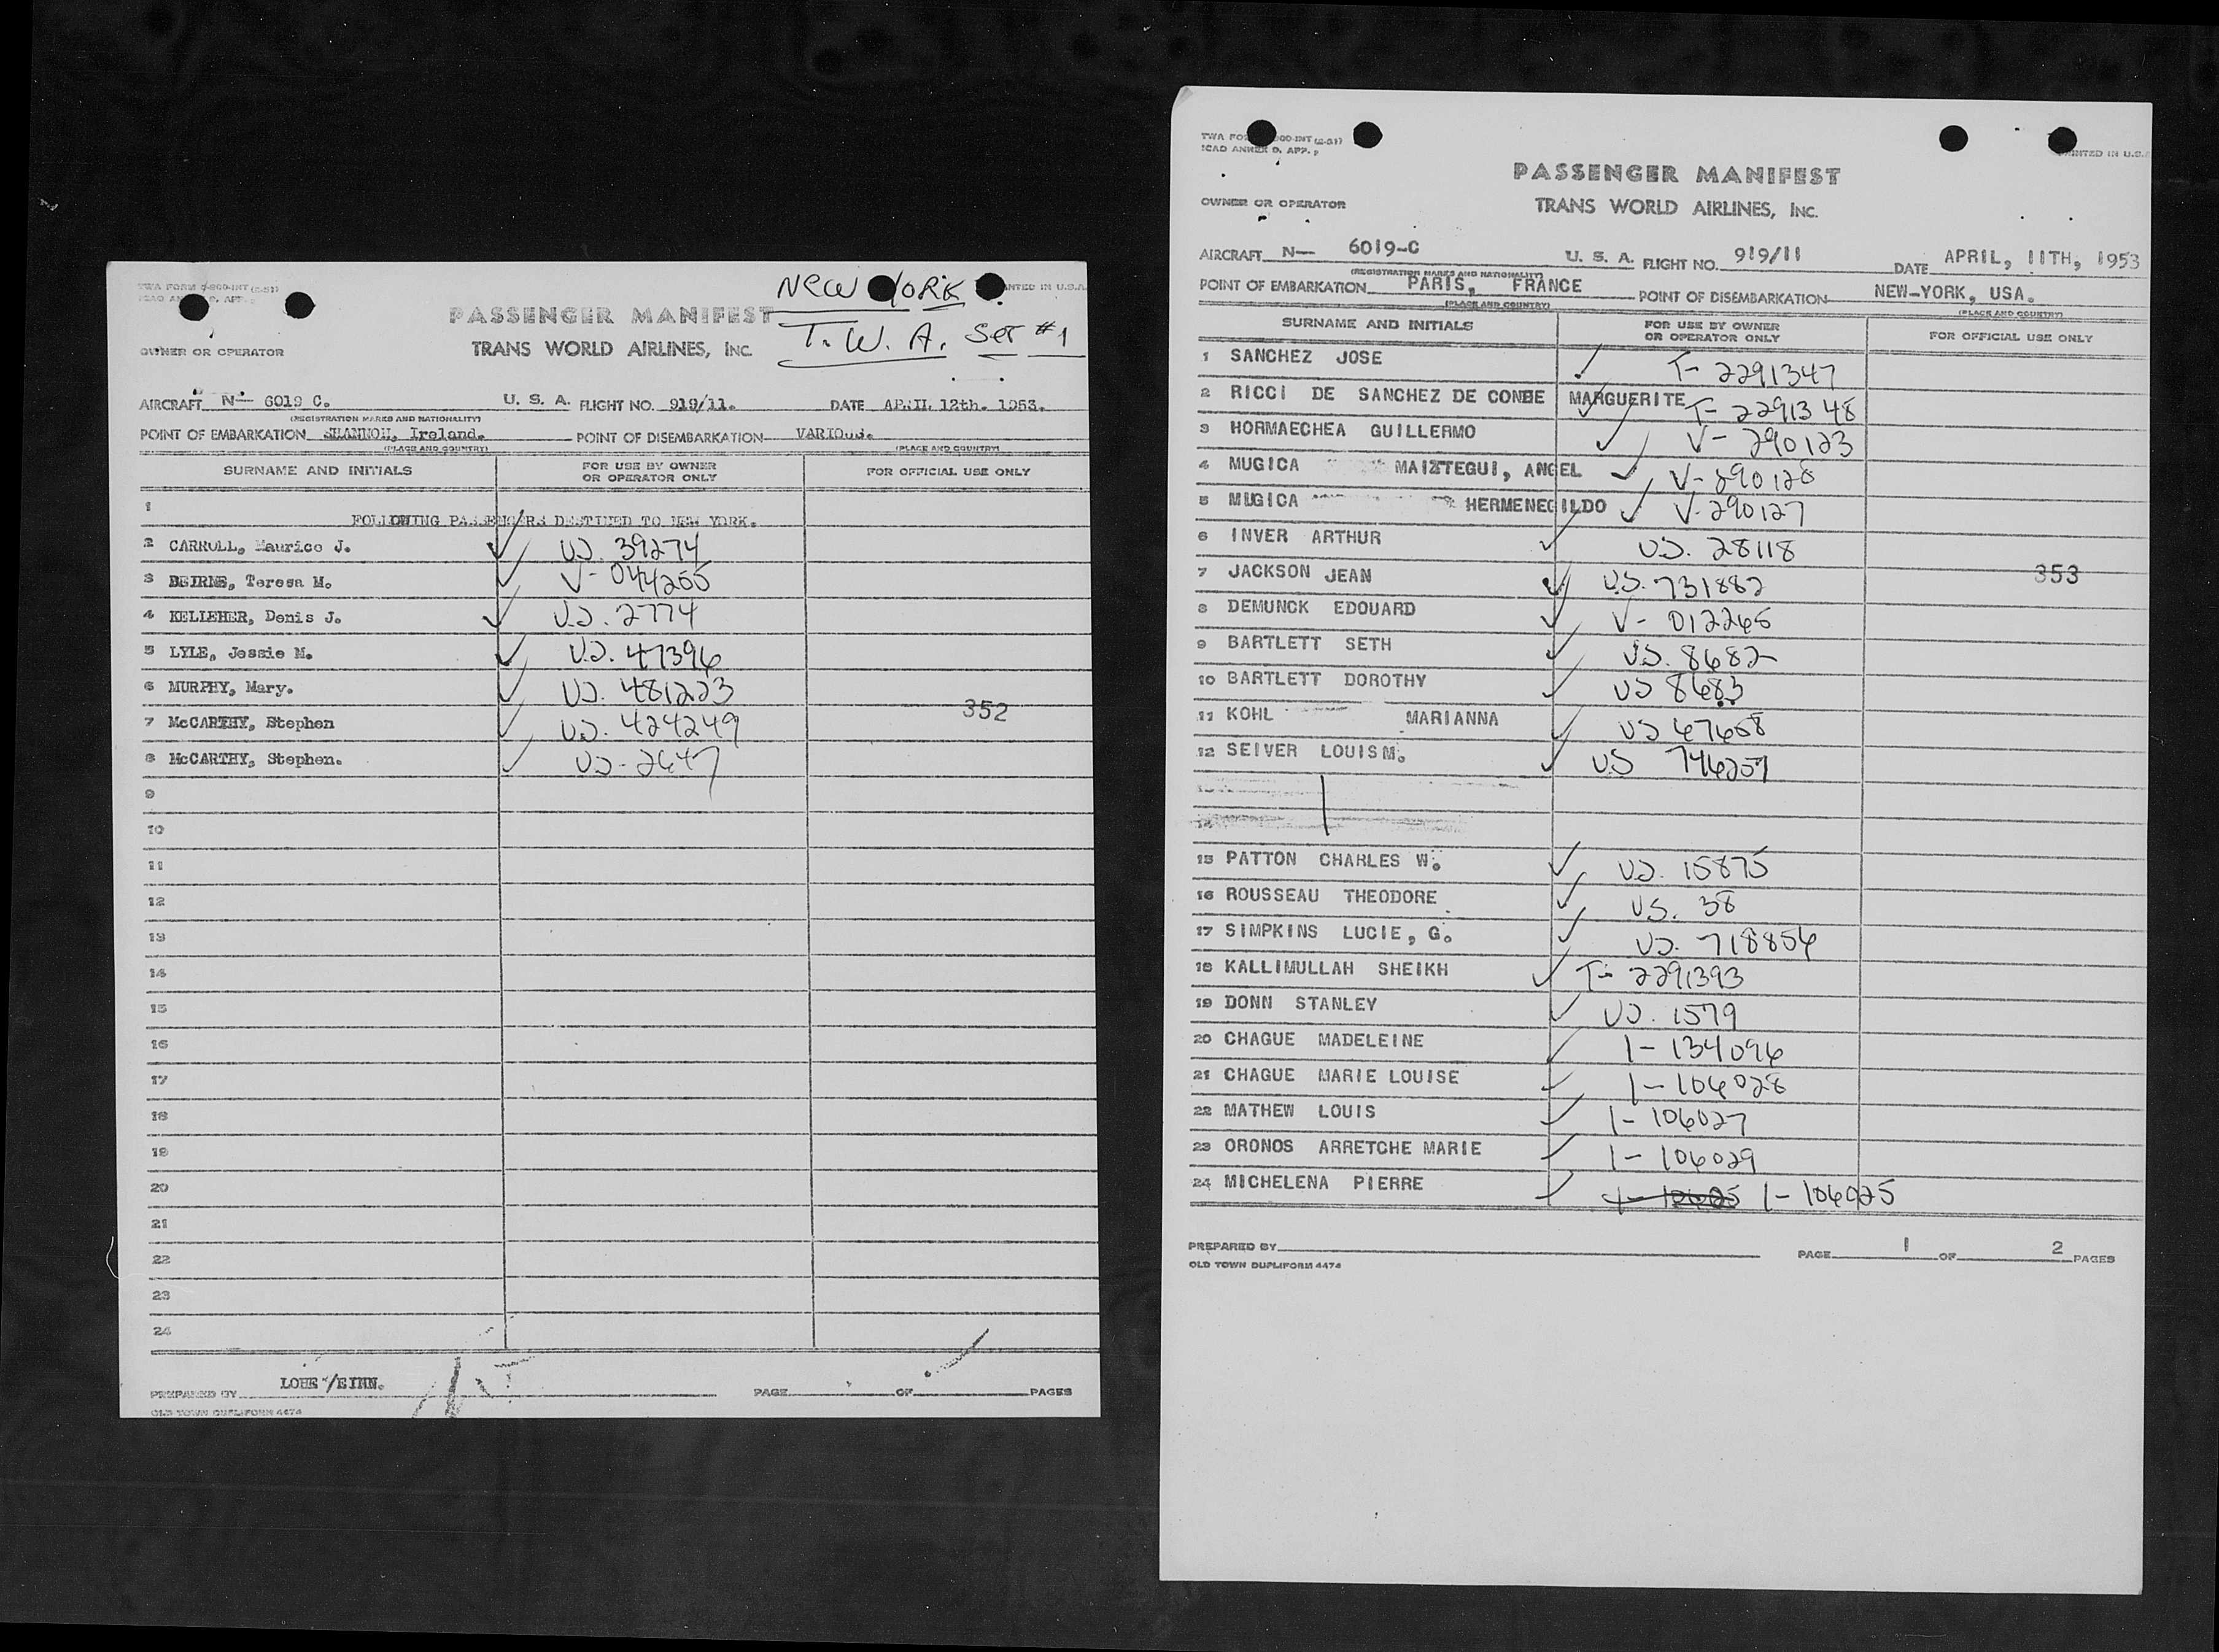 NEW YORK
T.W.A. Set #1
PASSENGER MANIFEST
TRANS WORLD AIRLINES, INC.
OWNER OR OPERATOR
AIRCRAFT N— 6019 C. U. S. A. FLIGHT NO. 919/11. DATE APRIL 12th. 1953.
(REGISTRATION MARKS AND NATIONALITY)
POINT OF EMBARKATION SHANNON, Ireland. POINT OF DISEMBARKATION VARIOUS.
(PLACE AND COUNTRY) (PLACE AND COUNTRY)
SURNAME AND INITIALS FOR USE BY OWNER OR OPERATOR ONLY FOR OFFICIAL USE ONLY
1 FOLLOWING PASSENGERS DESTINED TO NEW YORK.
2 CARROLL, Maurice J. ✓ US. 39274
3 BEIRNE, Teresa M. ✓ V- 044255
4 KELLEHER, Denis J. ✓ US. 2774
5 LYLE, Jessie M. ✓ US. 47396
6 MURPHY, Mary. ✓ US. 481223
7 McCARTHY, Stephen ✓ US. 424249 352
8 McCARTHY, Stephen. ✓ US- 2647
9
10
11
12
13
14
15
16
17
18
19
20
21
22
23
24
PREPARED BY PAGE OF PAGES
OLD TOWN DUPLIFORM 4474
PRINTED IN U.S.
PASSENGER MANIFEST
TRANS WORLD AIRLINES, INC.
OWNER OR OPERATOR
AIRCRAFT N— 6019-C U. S. A. FLIGHT NO. 919/11 DATE APRIL, 11TH, 1953
(REGISTRATION MARKS AND NATIONALITY)
POINT OF EMBARKATION PARIS, FRANCE POINT OF DISEMBARKATION NEW-YORK, USA.
(PLACE AND COUNTRY) (PLACE AND COUNTRY)
SURNAME AND INITIALS FOR USE BY OWNER OR OPERATOR ONLY FOR OFFICIAL USE ONLY
1 SANCHEZ JOSE ✓ T- 2291347
2 RICCI DE SANCHEZ DE CONDE MARGUERITE ✓ T- 2291348
3 HORMAECHEA GUILLERMO ✓ V- 290123
4 MUGICA MAIZTEGUI, ANGEL ✓ V- 290128
5 MUGICA HERMENEGILDO ✓ V- 290127
6 INVER ARTHUR ✓ US. 28118
7 JACKSON JEAN ✓ US. 731882 353
8 DEMUNCK EDOUARD ✓ V- 012265
9 BARTLETT SETH ✓ US. 8682
10 BARTLETT DOROTHY ✓ US 8683
11 KOHL MARIANNA ✓ US 47658
12 SEIVER LOUIS M. ✓ US 746257
14
15 PATTON CHARLES W. ✓ US. 15875
16 ROUSSEAU THEODORE ✓ US. 38
17 SIMPKINS LUCIE, G. ✓ US. 718856
18 KALLIMULLAH SHEIKH ✓ T- 2291393
19 DONN STANLEY ✓ US. 1579
20 CHAGUE MADELEINE ✓ 1- 134096
21 CHAGUE MARIE LOUISE ✓ 1- 106028
22 MATHEW LOUIS ✓ 1- 106027
23 ORONOS ARRETCHE MARIE ✓ 1- 106029
24 MICHELENA PIERRE ✓ 1- 106025
PREPARED BY PAGE 1 OF 2 PAGES
OLD TOWN DUPLIFORM 4474